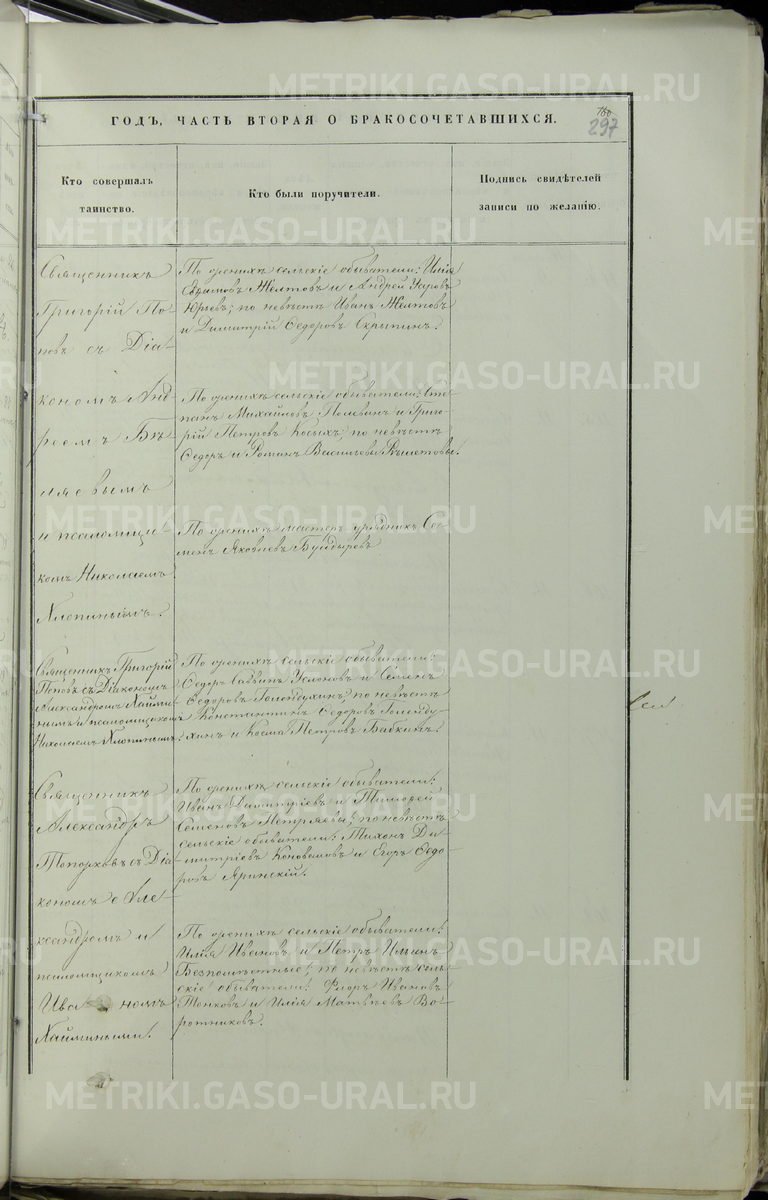 ГОДЪ, ЧАСТЬ ВТОРАЯ О БРАКОСОЧЕТАВШИХСЯ.
297
Кто совершалъ
таинство.
Кто были поручители.
Подпись свидѣтелей
записи по желанію.
Священникъ
Григорій По-
повъ съ Діа-
кономъ Анд-
реемъ
и псаломщи-
комъ Николаемъ
Хлопинымъ.
По женихѣ сельскіе обыватели: Илія
Евдимовъ Желтовъ и Андрей Уаровъ
Юрьевъ; по невѣстѣ Иванъ Желтовъ
и Димитрій Ѳедоровъ Скрыпинъ.
По женихѣ сельскіе обыватели: Сте-
панъ Михайловъ и Григо-
рій Петровъ Косыхъ; по невѣстѣ
Ѳедоръ и Романъ Васильевы Рѣшетовы.
По женихѣ мастеръ урядникъ Се-
менъ Яковлевъ Бундыровъ
Священникъ Григорій
Поповъ съ Діакономъ
Александромъ Хайми-
нымъ и псаломщикомъ
Николаемъ Хлопинымъ.
По женихѣ сельскіе обыватели:
Ѳедоръ Саввинъ и Семенъ
Ѳедоровъ Голендухинъ; по невѣстѣ
Константинъ Ѳедоровъ Голенду-
хинъ и Косма Петровъ Бабкинъ.
Священникъ
Александръ
Топорковъ съ Діа-
кономъ Але-
ксандромъ и
псаломщикомъ
Ива номъ
Хаймиными.
По женихѣ сельскіе обыватели:
Иванъ Димитріевъ и Тимофей
Семеновъ Петряевы; по невѣстѣ
сельскіе обыватели: Тихонъ Ди-
митріевъ Коноваловъ и Егоръ Ѳедо-
ровъ Яринскій.
По женихѣ сельскіе обыватели:
Илія Ивановъ и Петръ Ильинъ
Безпомѣстные; по невѣстѣ сель-
скіе обыватели: Флоръ Ивановъ
Тонковъ и Илія Матвѣевъ Во-
ротниковъ.
METRIKI.GASO-URAL.RU